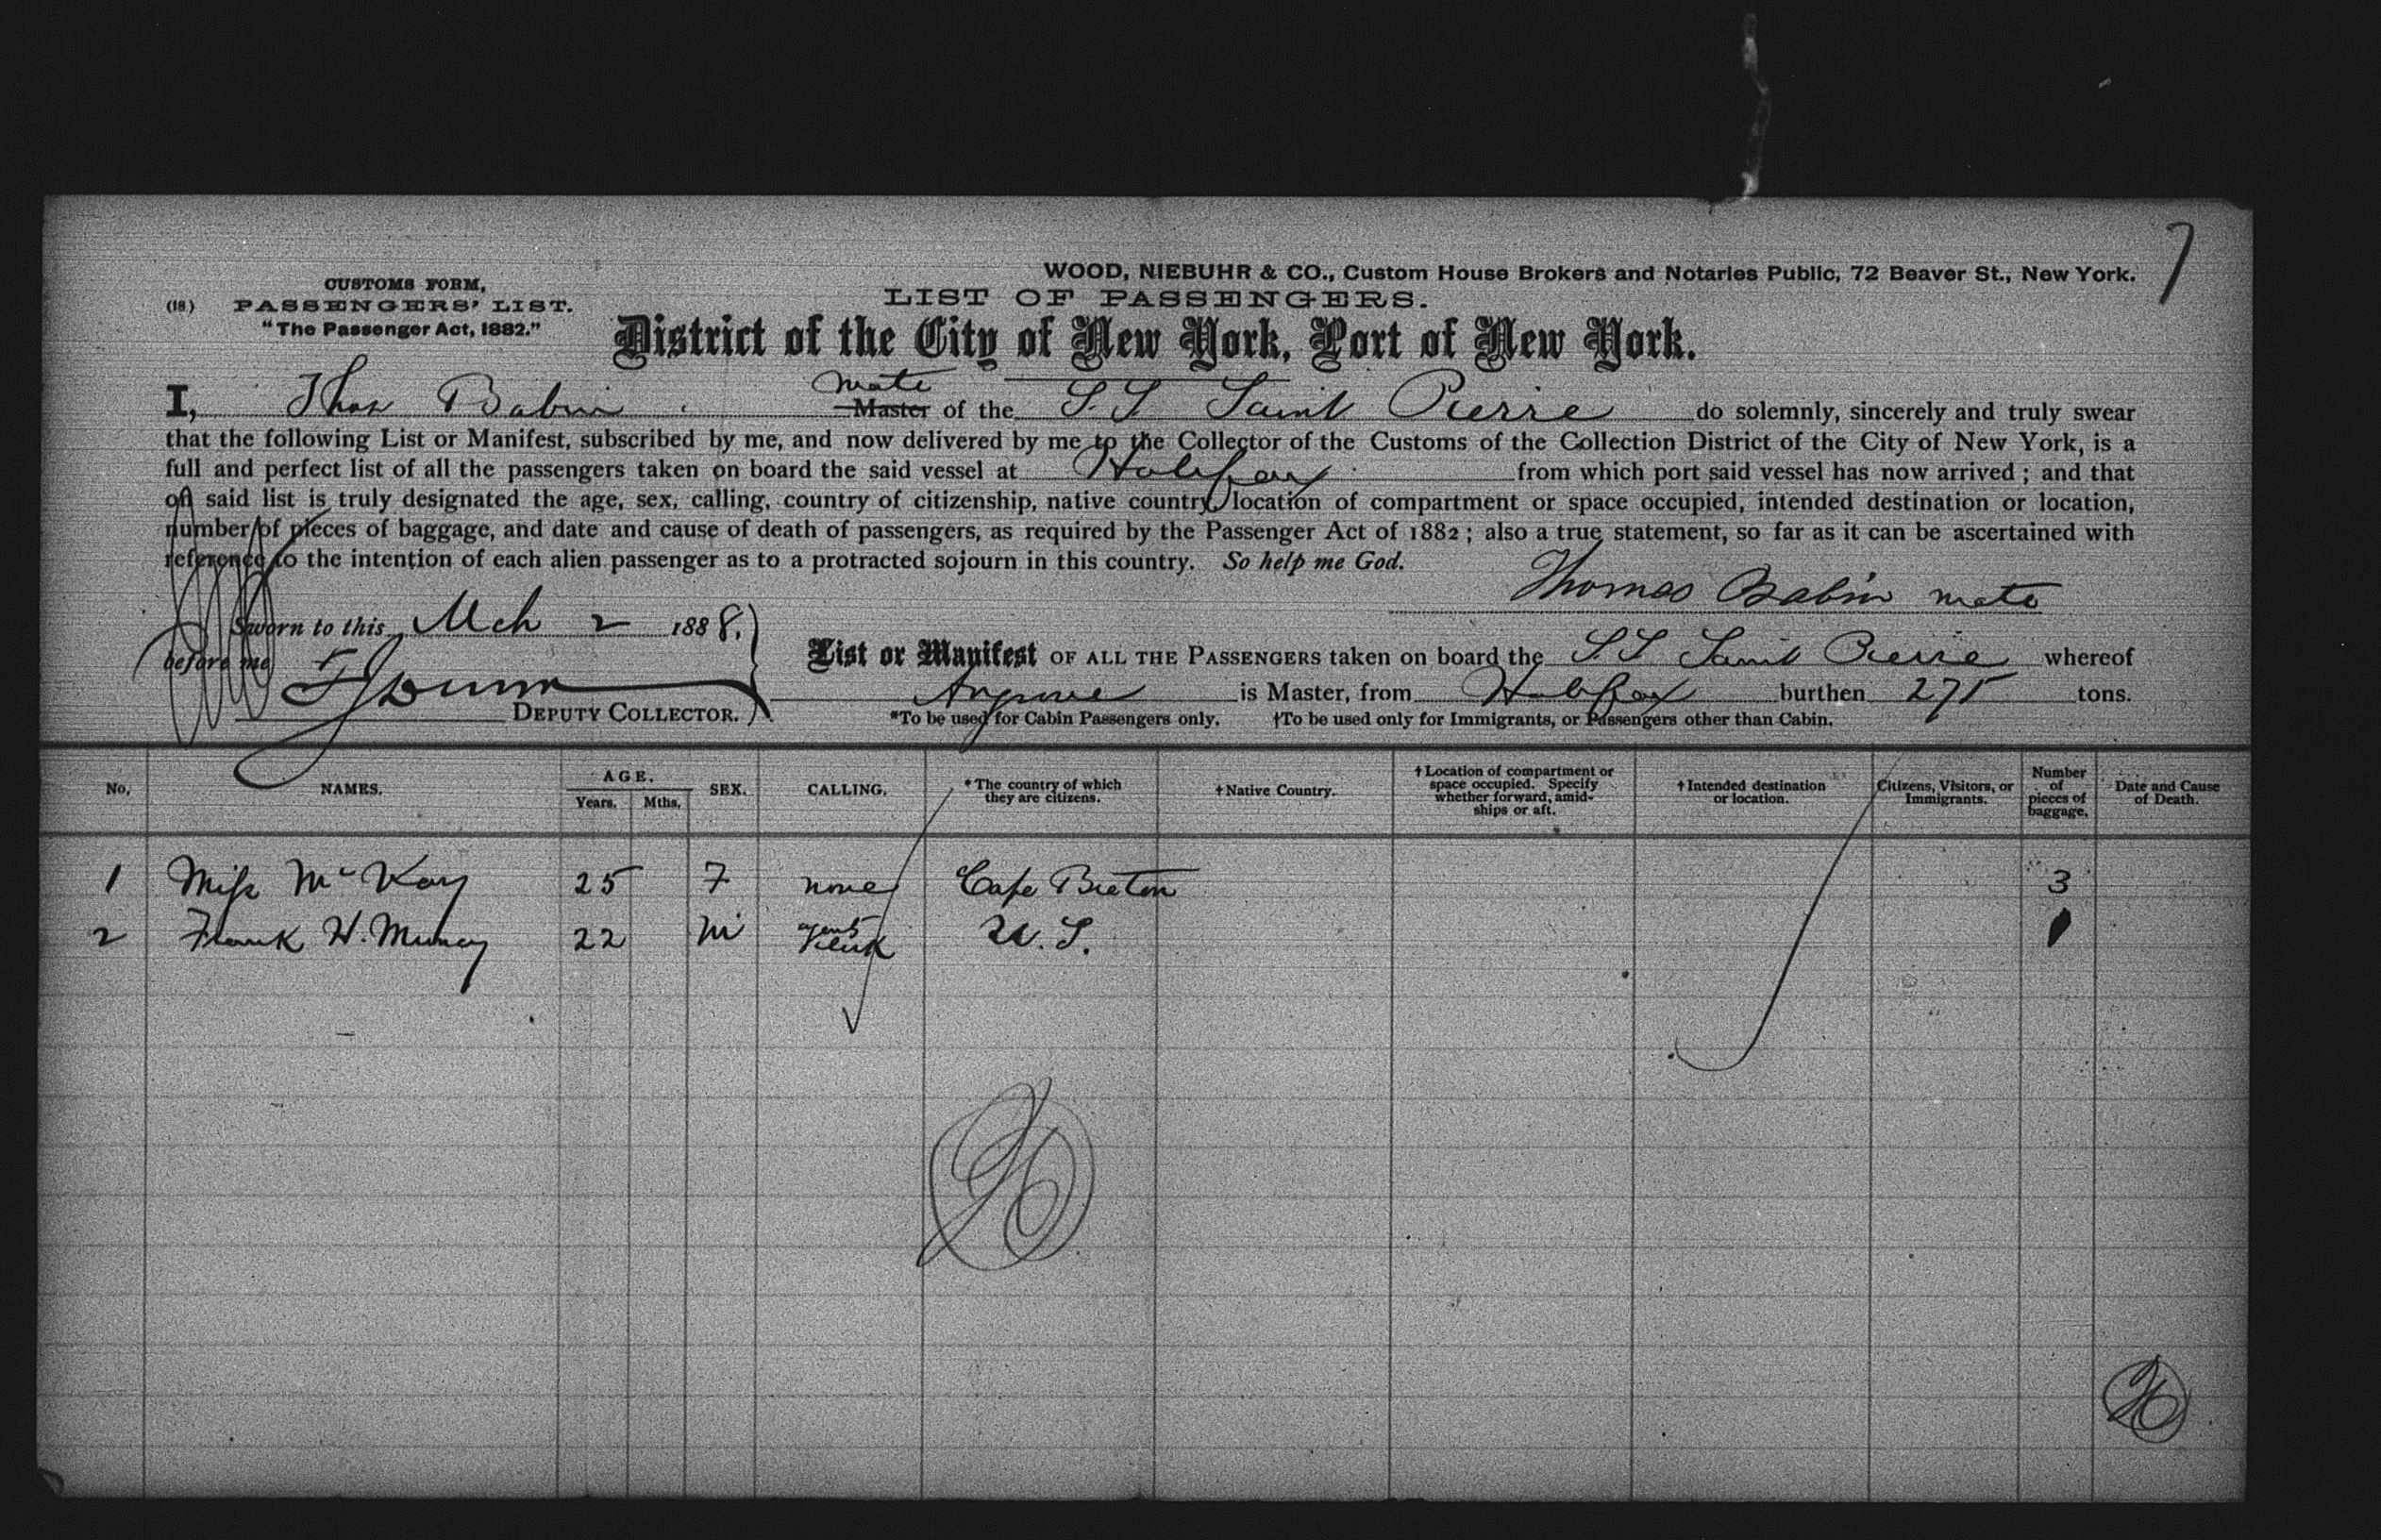 7
WOOD, NIEBUHR & CO., Custom House Brokers and Notaries Public, 72 Beaver St., New York.
CUSTOMS FORM,
(18) PASSENGERS' LIST.
"The Passenger Act, 1882."
LIST OF PASSENGERS.
District of the City of New York, Port of New York.
mate
I, Thos Babin Master of the S.S Saint Pierre do solemnly, sincerely and truly swear
that the following List or Manifest, subscribed by me, and now delivered by me to the Collector of the Customs of the Collection District of the City of New York, is a
full and perfect list of all the passengers taken on board the said vessel at Halifax from which port said vessel has now arrived ; and that
on said list is truly designated the age, sex, calling, country of citizenship, native country, location of compartment or space occupied, intended destination or location,
number of pieces of baggage, and date and cause of death of passengers, as required by the Passenger Act of 1882 ; also a true statement, so far as it can be ascertained with
reference to the intention of each alien passenger as to a protracted sojourn in this country. So help me God.
Thomas Babin mate
Sworn to this Mch 2 1888.
before me
DEPUTY COLLECTOR.
List or Manifest OF ALL THE PASSENGERS taken on board the S.S Saint Pierre whereof
is Master, from Halifax burthen 275 tons.
*To be used for Cabin Passengers only. †To be used only for Immigrants, or Passengers other than Cabin.
No. NAMES. AGE. Years. Mths. SEX. CALLING. *The country of which they are citizens. †Native Country. †Location of compartment or space occupied. Specify whether forward, amidships or aft. †Intended destination or location. Citizens, Visitors, or Immigrants. Number of pieces of baggage. Date and Cause of Death.
1 Miss McKay 25 F none Cape Breton 3
2 Frank H. Murray 22 M Clerk U.S.